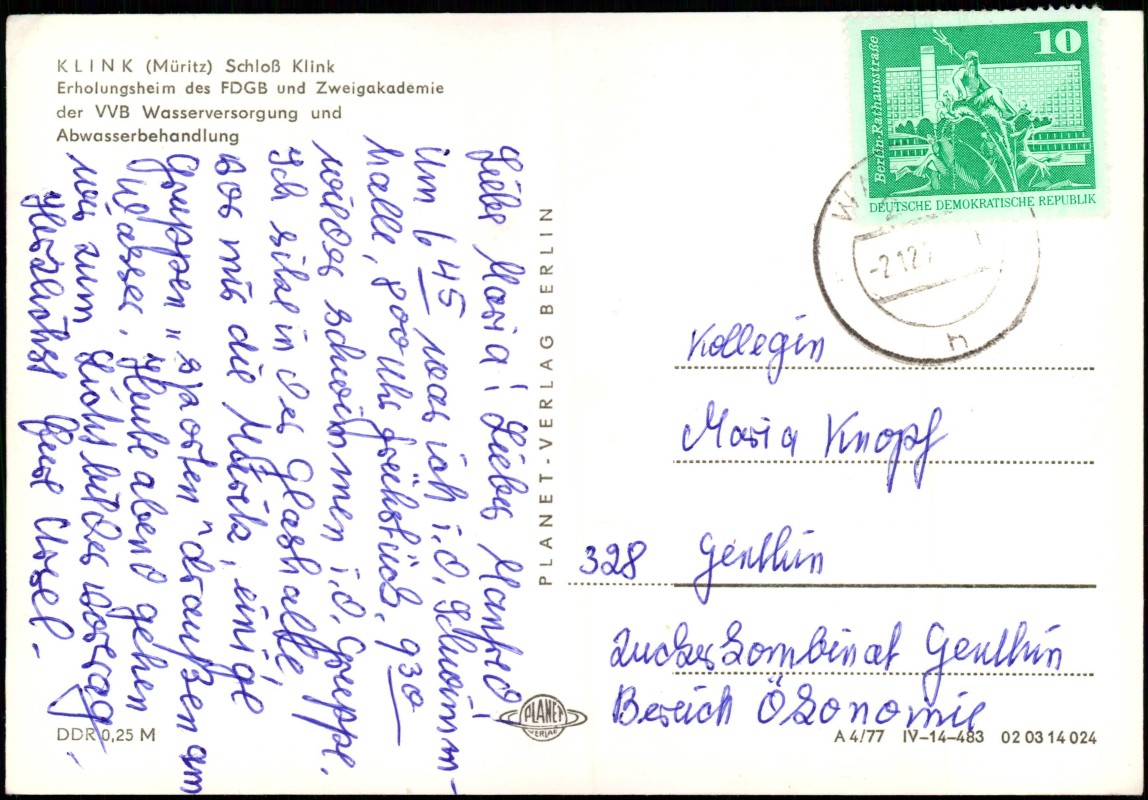 KLINK (Müritz) Schloß Klink
Erholungsheim des FDGB und Zweigakademie
der VVB Wasserversorgung und
Abwasserbehandlung
Liebe Maria! Lieber Manfred!
Um 6 45 war ich i.d. Schwimm-
halle, 8 00 Uhr Frühstück, 9 30
wieder schwimmen i.d. Gruppe.
Ich sitze in der Glashalle,
vor mir die Müritz, einige
Gruppen "sporten" draußen am
Wasser. Heute abend gehen
wir zum Lichtbildervortrag.
Herzlichst Eure Ursel.
PLANET-VERLAG BERLIN
Berlin-Rathausstraße
10
DEUTSCHE DEMOKRATISCHE REPUBLIK
-2.12.
n
Kollegin
Maria Knopf
328 Genthin
Zuckerkombinat Genthin
Bereich Ökonomie
DDR 0,25 M
PLANET
VERLAG
A 4/77 IV-14-483 02 03 14 024